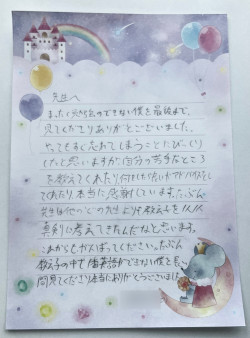 先生へ
まったく英語のできない僕を最後まで、
見てくださりありがとうございました。
やってもすぐ忘れてしまうことにびっくり
したと思いますが、自分の苦手なところ
を教えてくれたり、何かしらアドバイスをし
てくれたり、本当に感謝しています。たぶん
先生は他のどの先生よりも教え子を1人1人
真剣に考えてきたんだなと思います。
これからもがんばってください。たぶん
教え子の中で1番英語ができない僕を長い
間見てくださり本当にありがとうございました